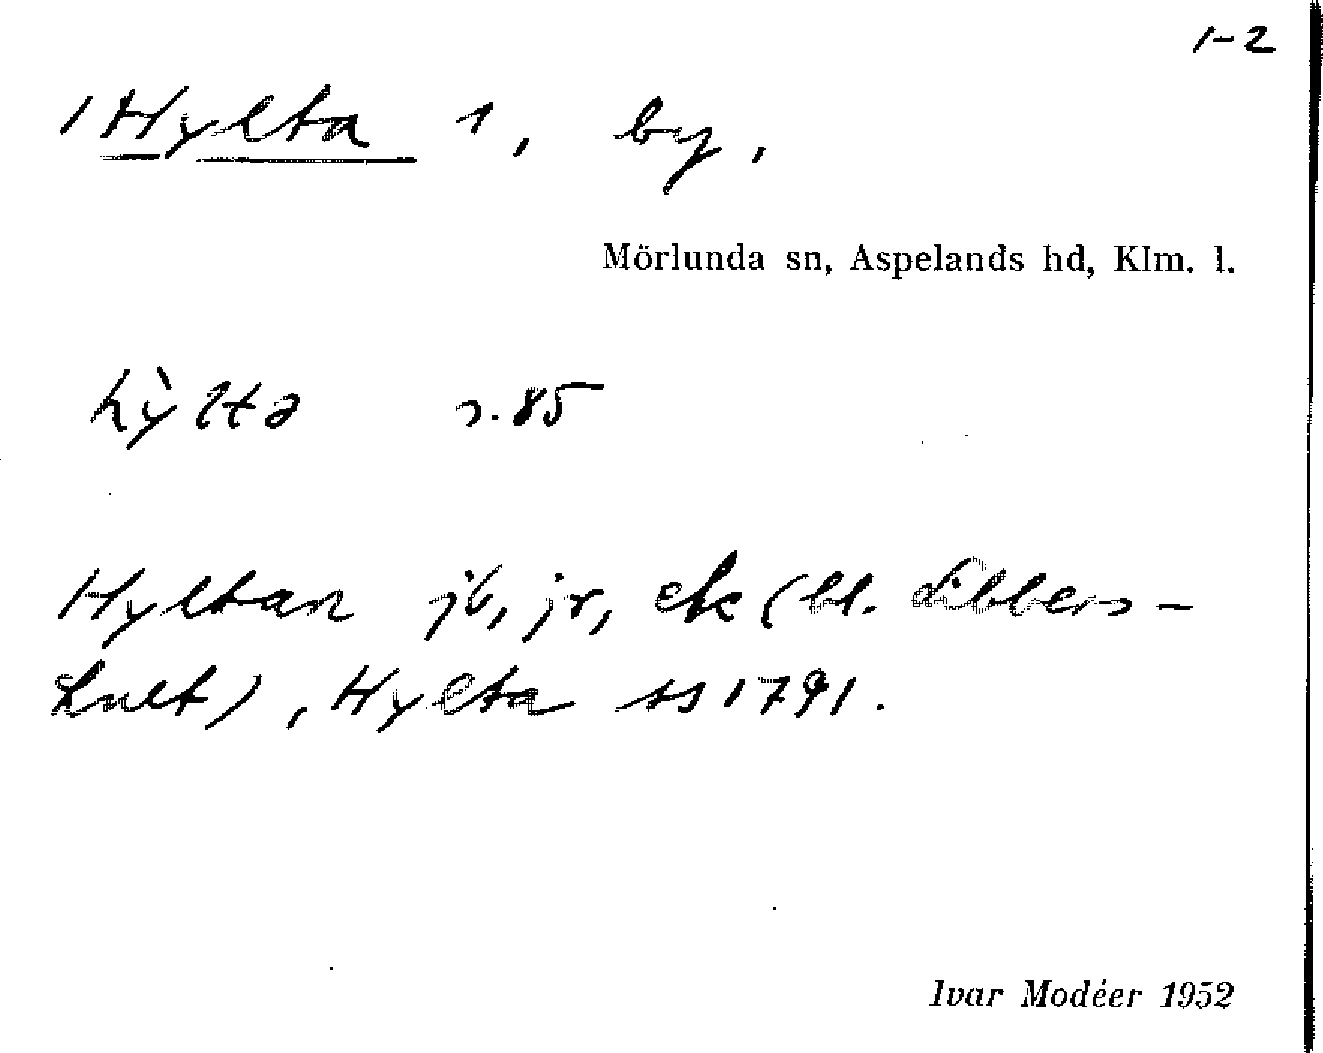 1-2
1 Hylta 1, by,
Mörlunda sn, Aspelands hd, Klm. l.
hỳlta s. 85
Hyltan jb, jr, ek (bl. Libbers-
hult), Hylta ss 1791.
Ivar Modéer 1952